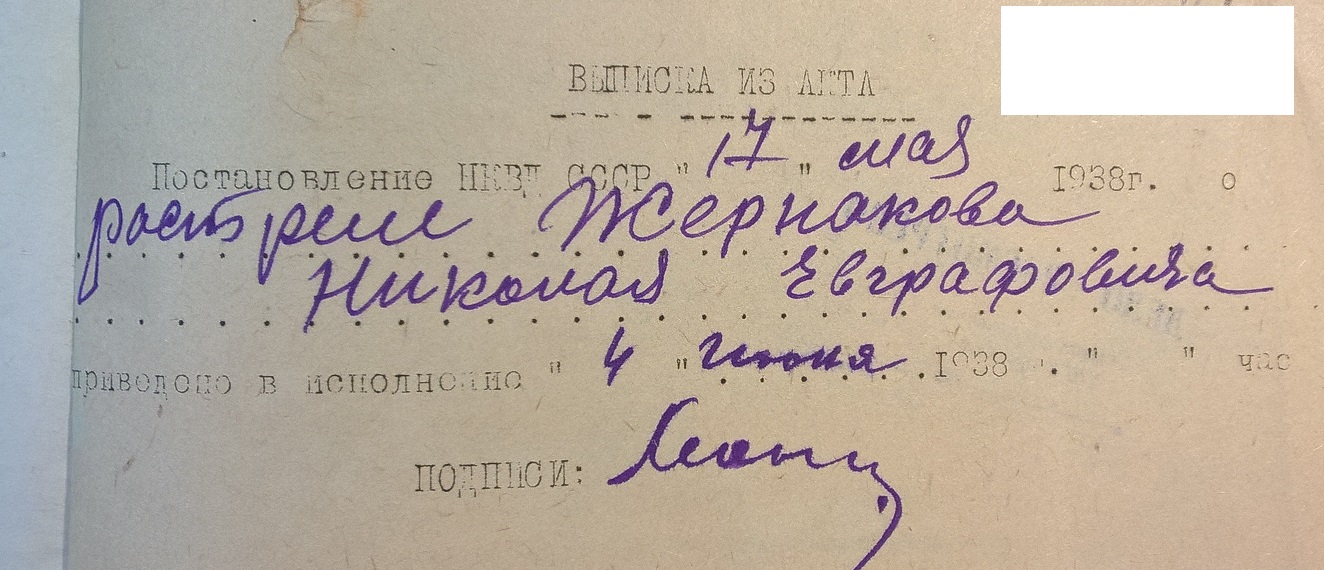 ВЫПИСКА ИЗ АКТА
Постановление НКВД СССР "17" мая 1938г. о
расстреле Жернакова
Николая Евграфовича
приведено в исполнение "4" июня 1938 г. " " час
ПОДПИСИ: